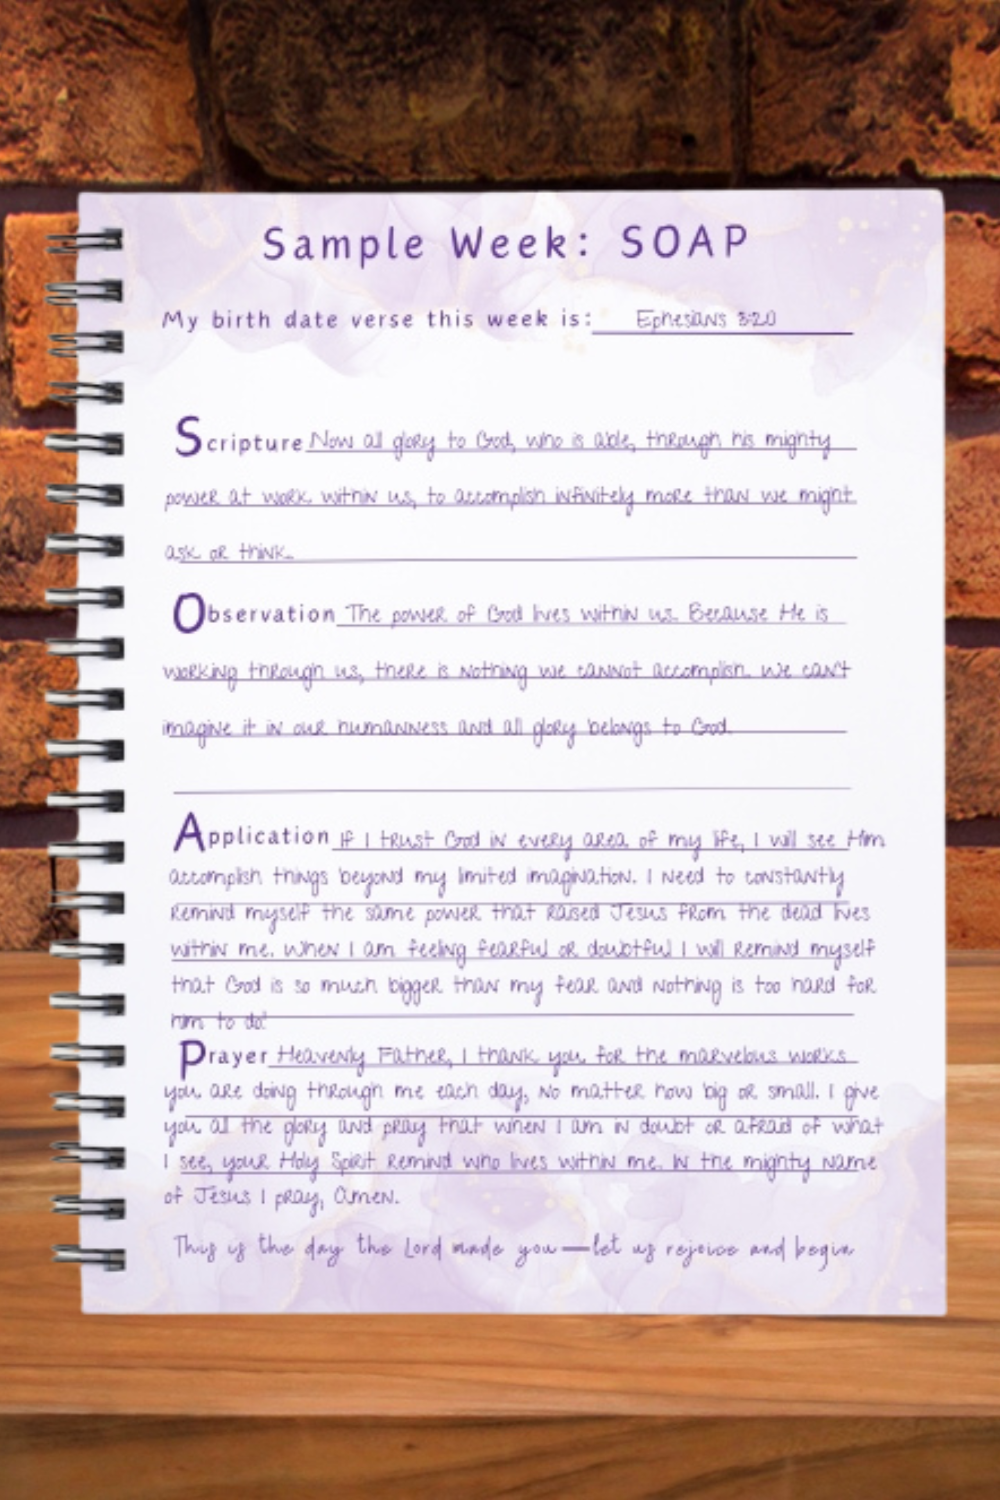 Sample Week: SOAP
My birth date verse this week is: Ephesians 3:20
Scripture Now all glory to God, who is able, through his mighty
power at work within us, to accomplish infinitely more than we might
ask or think.
Observation The power of God lives within us. Because He is
working through us, there is nothing we cannot accomplish. We can't
imagine it in our humanness and all glory belongs to God.
Application If I trust God in every area of my life, I will see Him
accomplish things beyond my limited imagination. I need to constantly
remind myself the same power that raised Jesus from the dead lives
within me. When I am feeling fearful or doubtful I will remind myself
that God is so much bigger than my fear and nothing is too hard for
him to do!
Prayer Heavenly Father, I thank you for the marvelous works
you are doing through me each day, no matter how big or small. I give
you all the glory and pray that when I am in doubt or afraid of what
I see, your Holy Spirit remind who lives within me. In the mighty name
of Jesus I pray, Amen.
This is the day the Lord made you—let us rejoice and begin